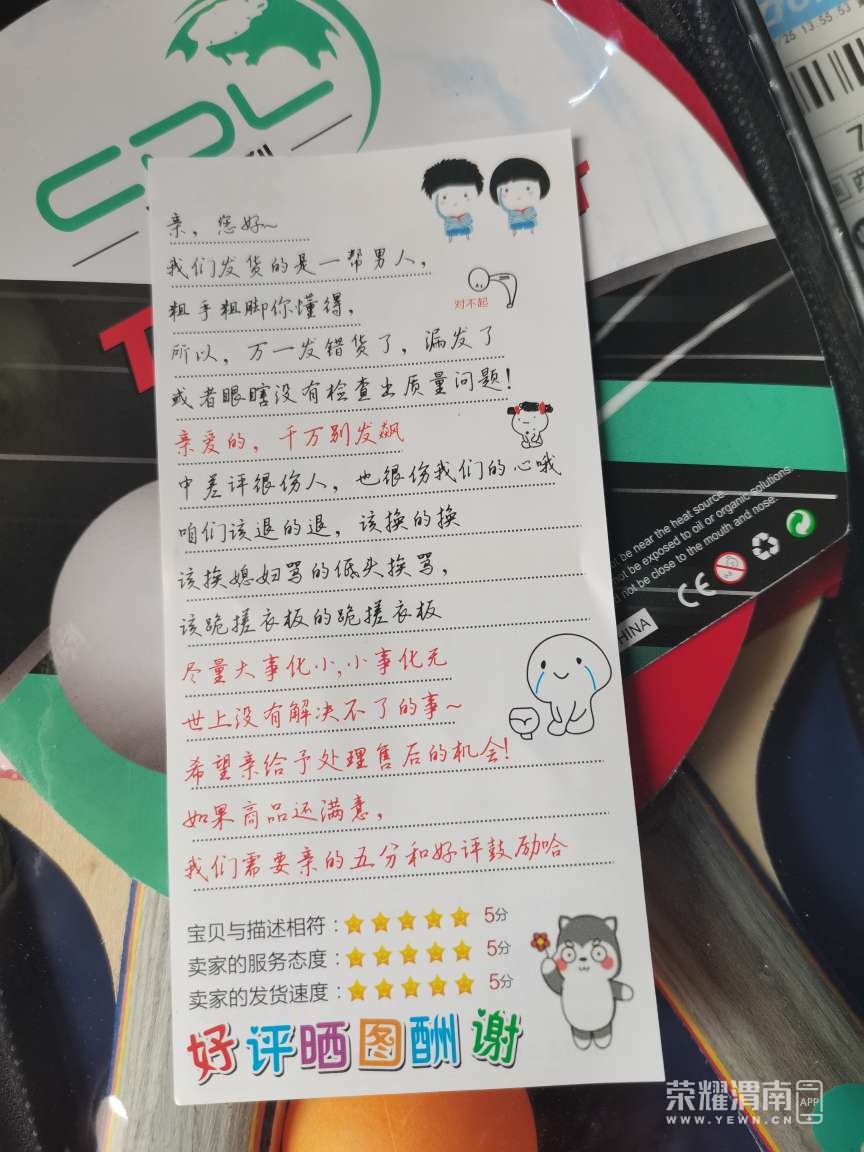 25 13 55 53
CDL
亲，您好~
我们发货的是一帮男人，
粗手粗脚你懂得，
对不起
所以，万一发错货了，漏发了
或者眼瞎没有检查出质量问题！
亲爱的，千万别发飙
中差评很伤人，也很伤我们的心哦
咱们该退的退，该换的换
该挨媳妇骂的低头挨骂，
该跪搓衣板的跪搓衣板
尽量大事化小，小事化无
世上没有解决不了的事~
希望亲给予处理售后的机会！
如果商品还满意，
我们需要亲的五分和好评鼓励哈
宝贝与描述相符：5分
卖家的服务态度：5分
卖家的发货速度：5分
好评晒图酬谢
be near the heat source
be exposed to oil or organic solutions.
be close to the mouth and nose.
CE
HINA
荣耀渭南 APP
WWW.YEWN.CN